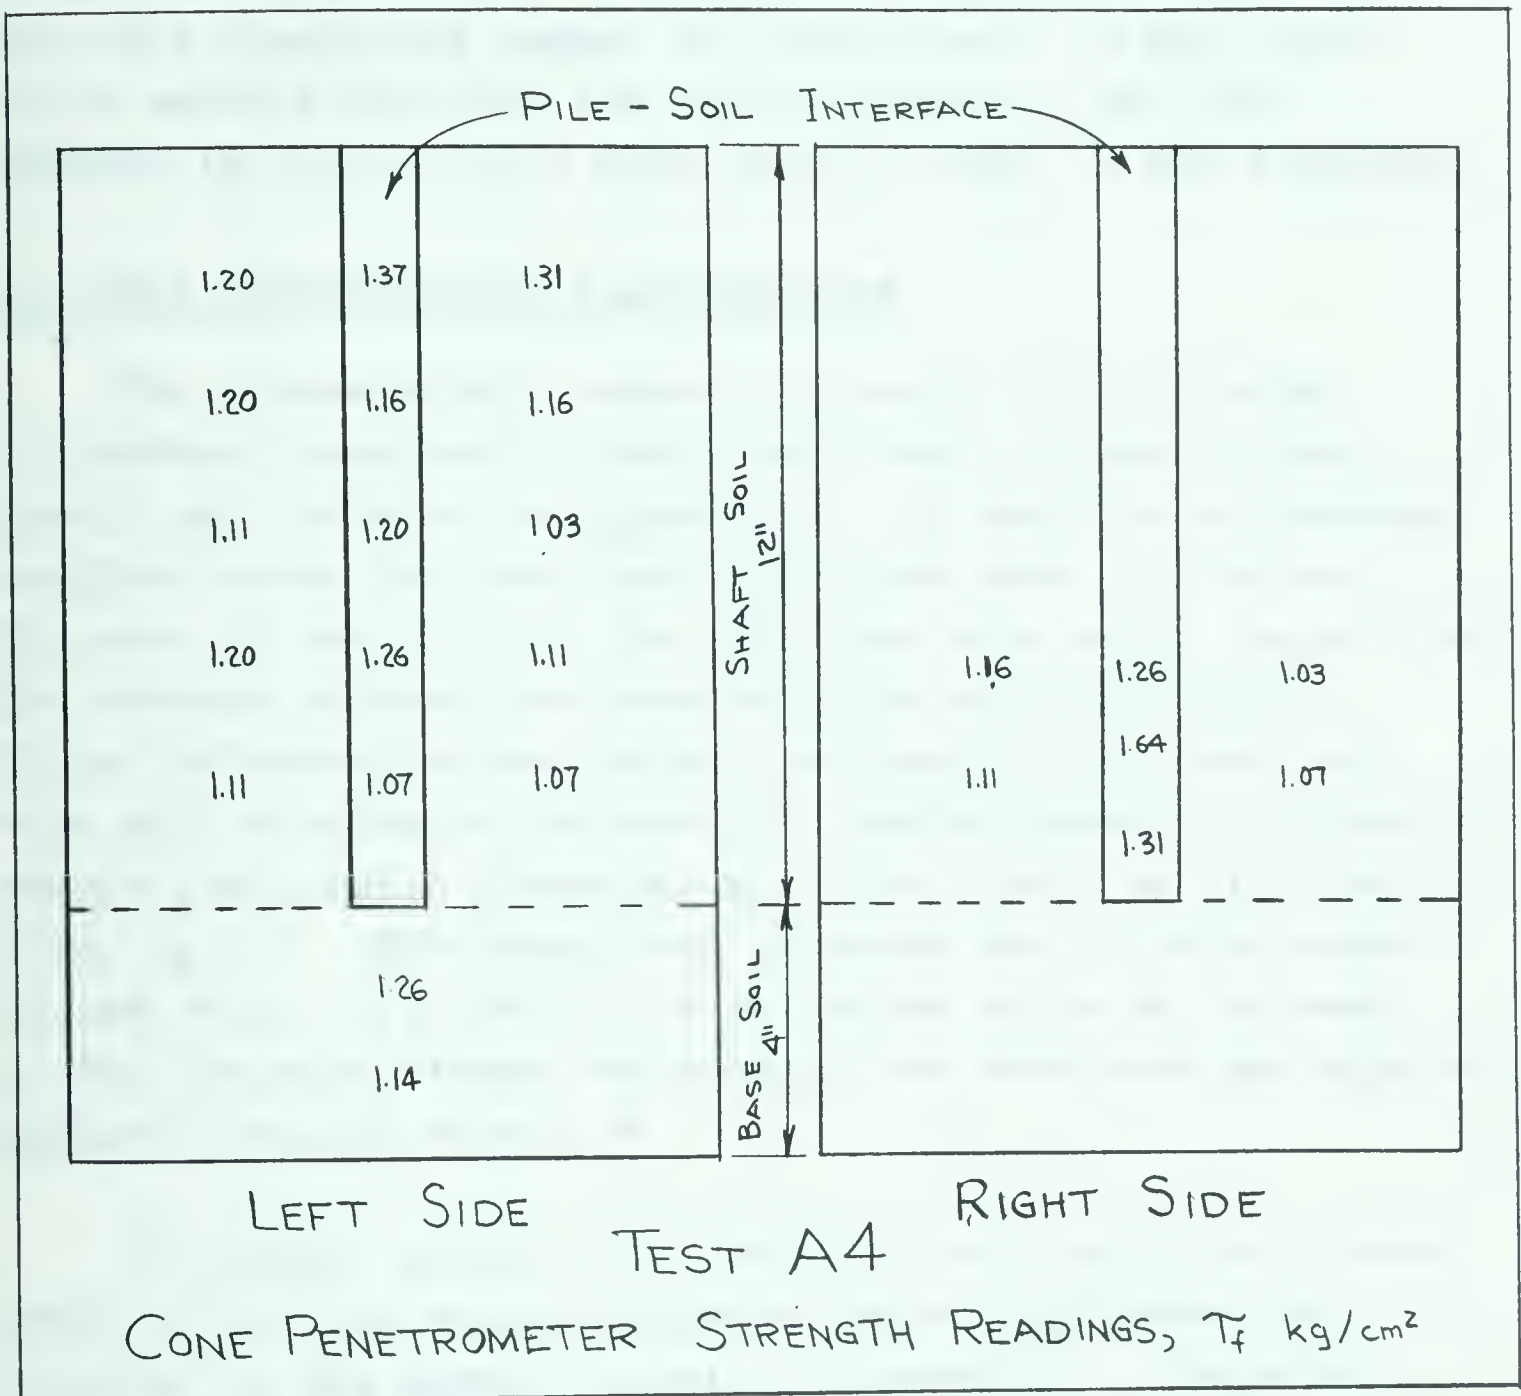 PILE - SOIL INTERFACE
1.20 1.37 1.31
1.20 1.16 1.16
1.11 1.20 1.03
1.20 1.26 1.11
1.11 1.07 1.07
1.26
1.14
SHAFT SOIL
12"
BASE SOIL
4"
1.16 1.26 1.03
1.64
1.11 1.07
1.31
LEFT SIDE
RIGHT SIDE
TEST A4
CONE PENETROMETER STRENGTH READINGS, τf kg/cm²